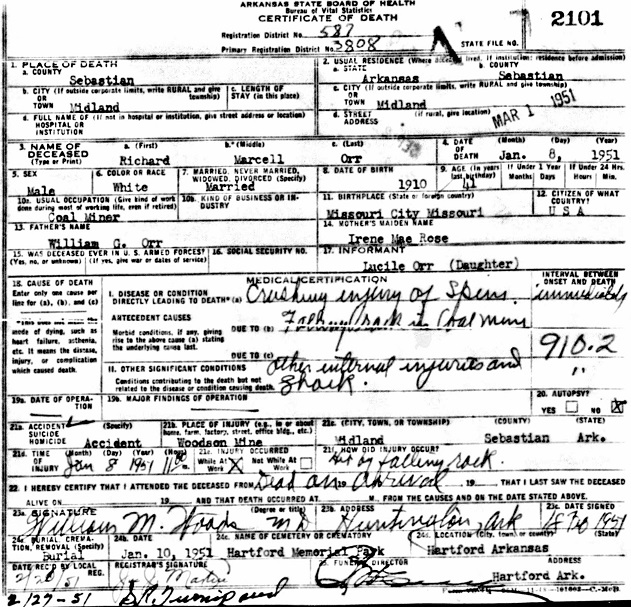 ARKANSAS STATE BOARD OF HEALTH
Bureau of Vital Statistics
CERTIFICATE OF DEATH
2101
Registration District No. 587
Primary Registration District No. 3808
STATE FILE NO.
1. PLACE OF DEATH
a. COUNTY
Sebastian
2. USUAL RESIDENCE (Where deceased lived. If institution: residence before admission)
a. STATE
Arkansas
b. COUNTY
Sebastian
b. CITY (If outside corporate limits, write RURAL and give township)
OR
TOWN Midland
c. LENGTH OF STAY (in this place)
c. CITY (If outside corporate limits, write RURAL and give township)
OR
TOWN Midland
d. FULL NAME OF (If not in hospital or institution, give street address or location)
HOSPITAL OR
INSTITUTION
d. STREET ADDRESS (If rural, give location)
MAR 1 1951
3. NAME OF DECEASED
(Type or Print)
a. (First) b. (Middle) c. (Last)
Richard Marcell Orr
4. DATE OF DEATH (Month) (Day) (Year)
Jan. 8, 1951
5. SEX
Male
6. COLOR OR RACE
White
7. MARRIED, NEVER MARRIED, WIDOWED, DIVORCED (Specify)
Married
8. DATE OF BIRTH
1910
9. AGE (In years last birthday)
41
If Under 1 Year
Months Days
If Under 24 Hrs.
Hours Min.
10a. USUAL OCCUPATION (Give kind of work done during most of working life, even if retired)
Coal Miner
10b. KIND OF BUSINESS OR INDUSTRY
11. BIRTHPLACE (State or foreign country)
Missouri City Missouri
12. CITIZEN OF WHAT COUNTRY?
U S A
13. FATHER'S NAME
William G. Orr
14. MOTHER'S MAIDEN NAME
Irene Mae Rose
15. WAS DECEASED EVER IN U. S. ARMED FORCES?
(Yes, no, or unknown) (If yes, give war or dates of service)
16. SOCIAL SECURITY NO.
17. INFORMANT
Lucile Orr (Daughter)
18. CAUSE OF DEATH
Enter only one cause per line for (a), (b), and (c)
*This does not mean the mode of dying, such as heart failure, asthenia, etc. It means the disease, injury, or complication which caused death.
MEDICAL CERTIFICATION
INTERVAL BETWEEN ONSET AND DEATH
I. DISEASE OR CONDITION
DIRECTLY LEADING TO DEATH* (a) Crushing injury of Spine.
ANTECEDENT CAUSES
Morbid conditions, if any, giving rise to the above cause (a) stating the underlying cause last.
DUE TO (b) Falling rock in Coal mine
DUE TO (c)
910.2
II. OTHER SIGNIFICANT CONDITIONS
Conditions contributing to the death but not related to the disease or condition causing death.
Other internal injuries and shock.
"
19a. DATE OF OPERATION
19b. MAJOR FINDINGS OF OPERATION
20. AUTOPSY?
YES NO X
21a. ACCIDENT (Specify)
SUICIDE
HOMICIDE Accident
21b. PLACE OF INJURY (e.g., in or about home, farm, factory, street, office bldg., etc.)
Woodson Mine
21c. (CITY, TOWN, OR TOWNSHIP) (COUNTY) (STATE)
Midland Sebastian Ark.
21d. TIME OF INJURY (Month) (Day) (Year) (Hour)
Jan 8 1951
21e. INJURY OCCURRED
While At Work X Not While At Work
21f. HOW DID INJURY OCCUR?
Hit by falling rock.
22. I HEREBY CERTIFY THAT I ATTENDED THE DECEASED FROM Dead on Arrival 19 THAT I LAST SAW THE DECEASED
ALIVE ON 19 AND THAT DEATH OCCURRED AT M., FROM THE CAUSES AND ON THE DATE STATED ABOVE.
23a. SIGNATURE (Degree or title)
William M. Woods MD
23b. ADDRESS
Huntington, Ark
23c. DATE SIGNED
18 Feb 1951
24a. BURIAL, CREMATION, REMOVAL (Specify)
Burial
24b. DATE
Jan. 10, 1951
24c. NAME OF CEMETERY OR CREMATORY
Hartford Memorial Park
24d. LOCATION (City, town, or county) (State)
Hartford Arkansas
DATE REC'D BY LOCAL REG.
REGISTRAR'S SIGNATURE
J. J. Martin
25. FUNERAL DIRECTOR
ADDRESS
Hartford Ark.
2-27-51